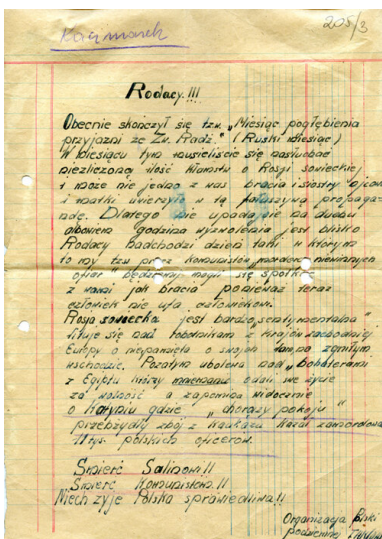 Kaczmarek
205/3
Rodacy!!!
Obecnie skończył się tzw. „Miesiąc pogłębienia
przyjaźni ze Zw. Radz." (Ruski miesiąc)
W miesiącu tym musieliście się nasłuchać
niezliczoną ilość kłamstw o Rosji sowieckiej
i może nie jedno z nas bracia i siostry ojcowie
i matki uwierzyło w tą fałszywą propagan-
dę. Dlatego nie upadajcie na duchu
albowiem godzina wyzwolenia jest blisko
Rodacy nadchodzi dzień taki w którym
to my tzw przez komunistów mordercy niewinnych
ofiar" będziemy mogli się spotkać
z wami jak bracia ponieważ teraz
człowiek nie ufa człowiekowi.
Rosja sowiecka jest bardzo „sentymentalna"
lituje się nad robotnikam z krajów zachodniej
Europy o niepamięta o swoich tam, na zgniłym
wschodzie. Pozatym ubolewa nad „bohaterami
z Egiptu którzy oddali swe życie
za wolność a zapomina widocznie
o Katyniu gdzie „chorąży pokoju"
przebrzydły zbój z Kaukazu kazał zamordować
11 tys. polskich oficerów.
Śmierć Salinowi!!
Śmierć Komunistom!!
Niech żyje Polska sprawiedliwa!!
Organizacja Polski
podziemnej